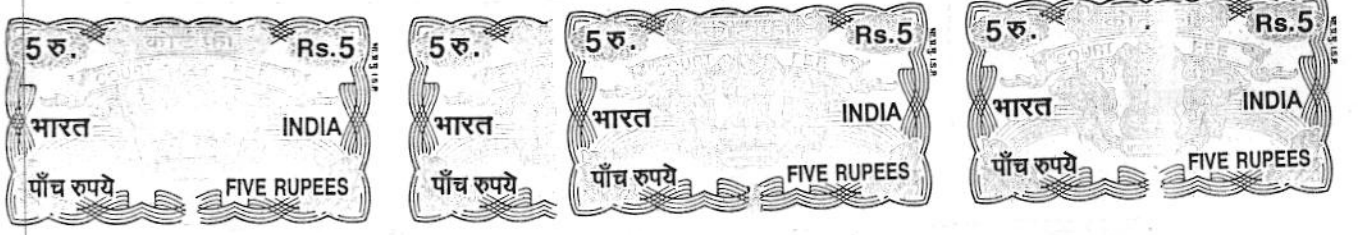 5 रु. Rs.5
कोर्ट फी
COURT FEE
भारत INDIA
पाँच रुपये FIVE RUPEES
5 रु.
भारत
पाँच रुपये
5 रु. Rs.5
COURT FEE
भारत INDIA
पाँच रुपये FIVE RUPEES
5 रु. Rs.5
COURT FEE
भारत INDIA
पाँच रुपये FIVE RUPEES